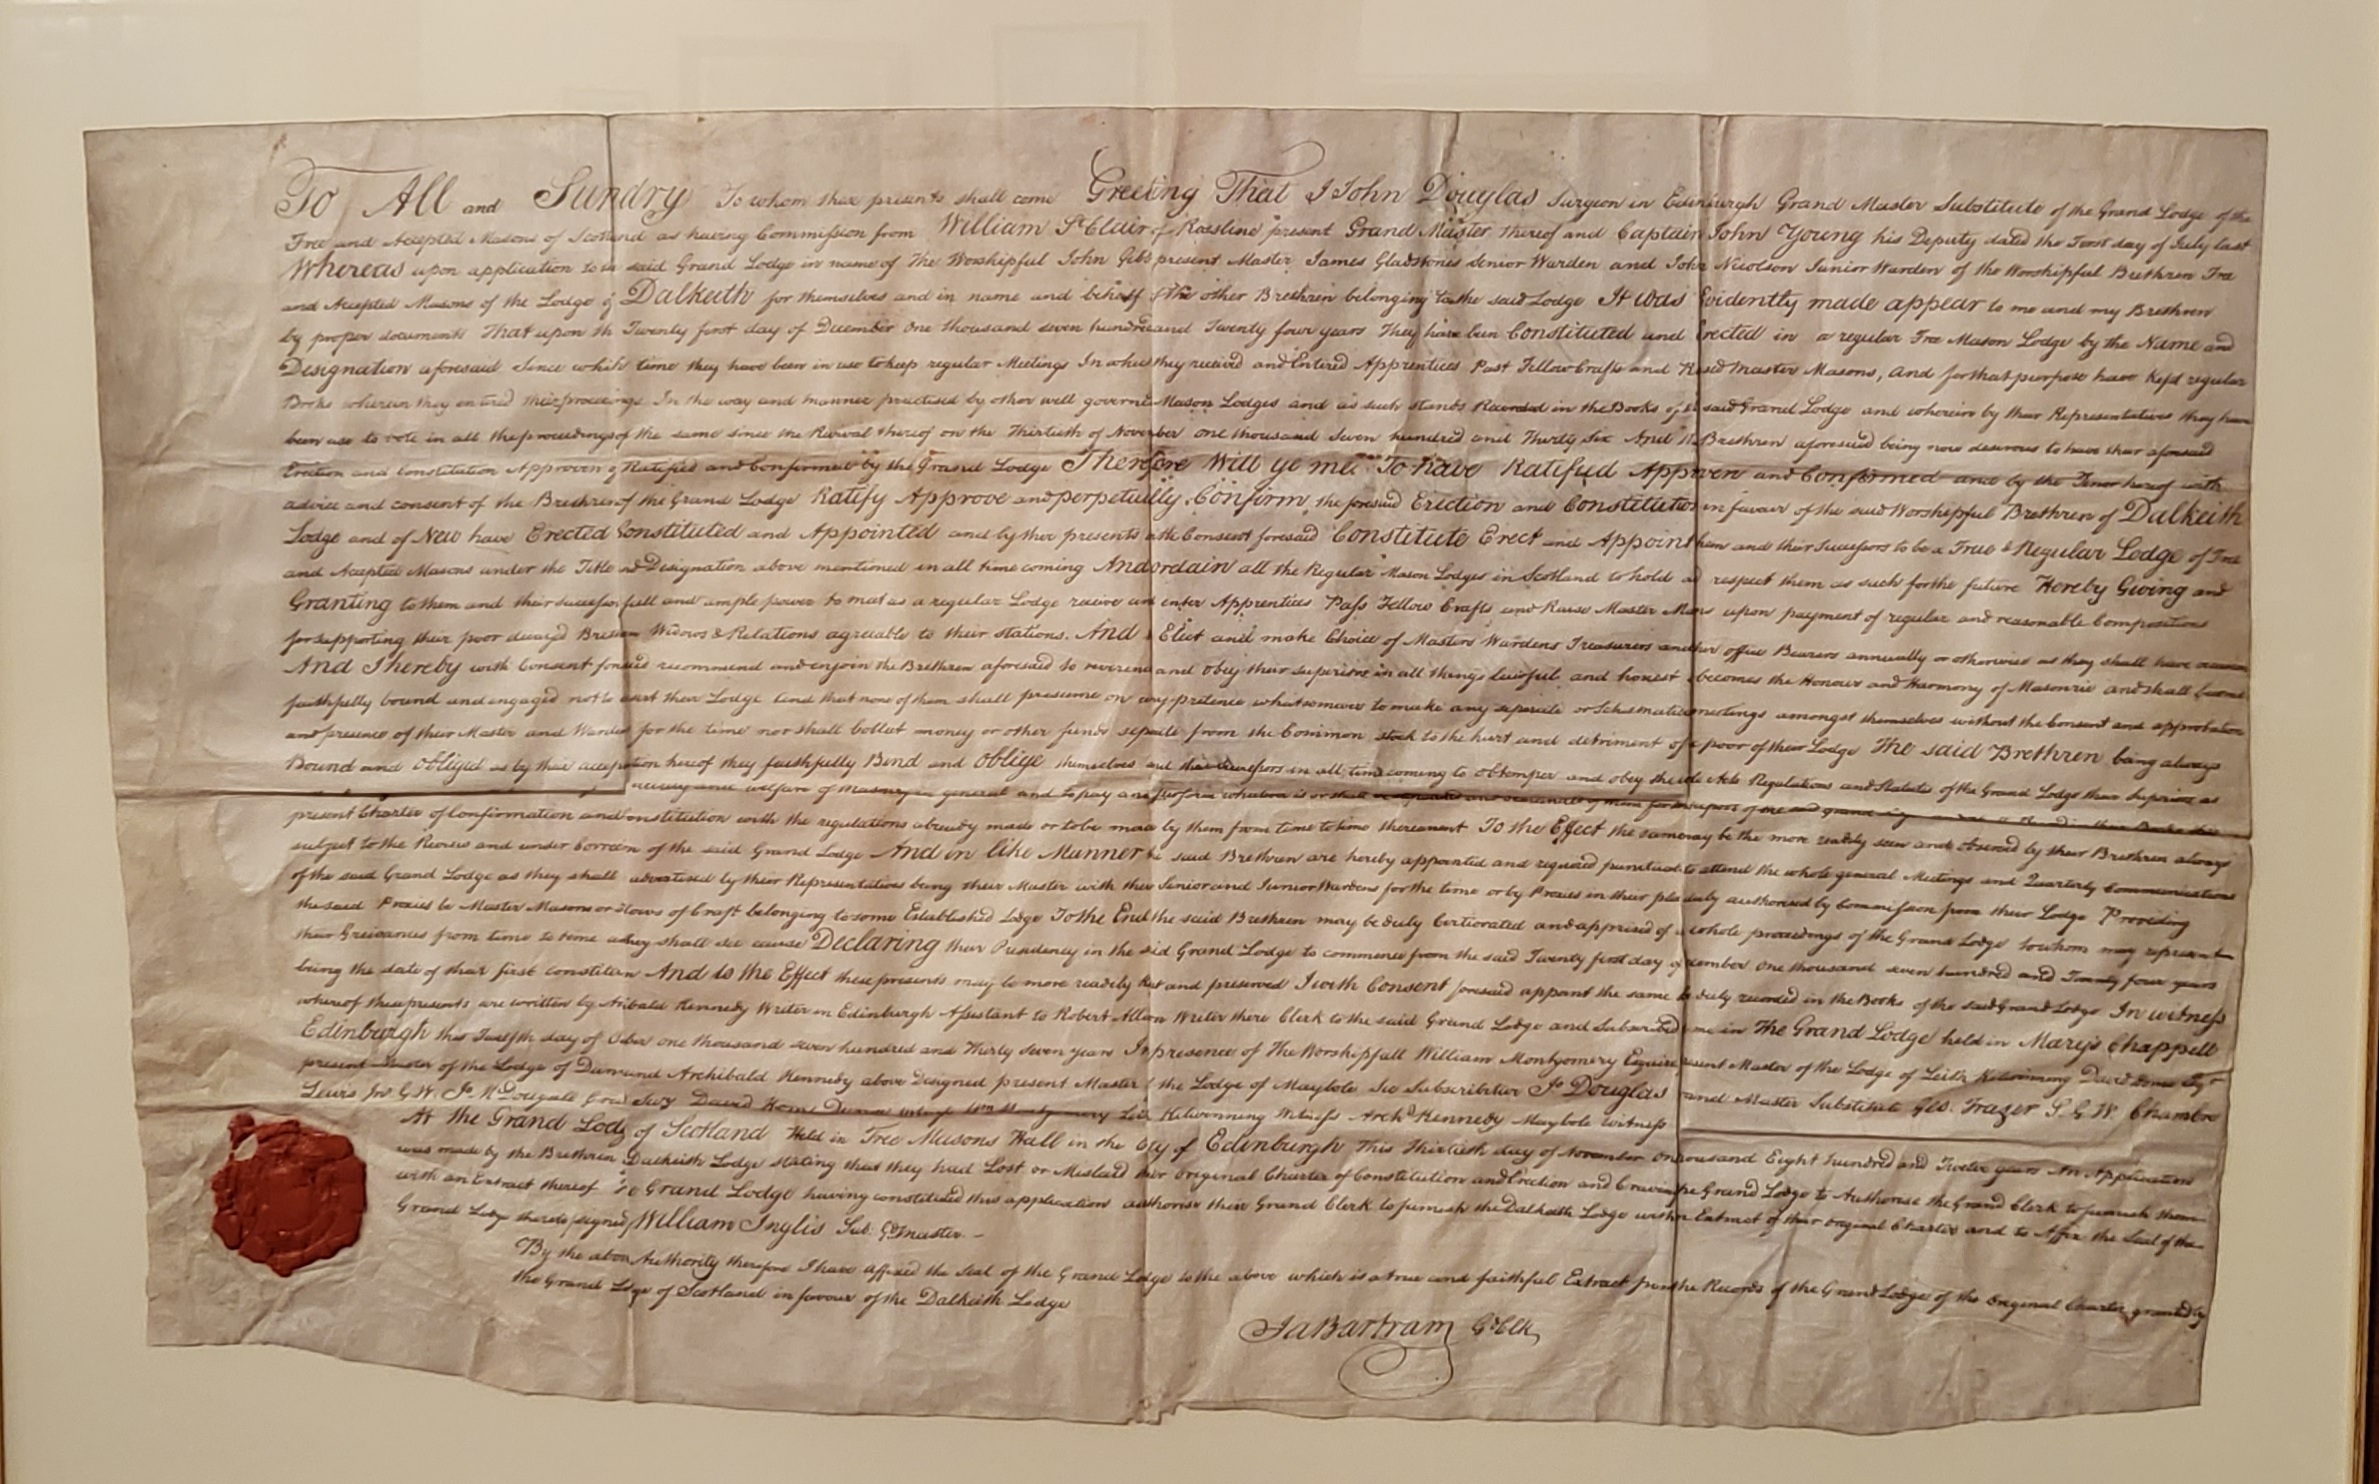 To All and Sundry To whom these presents shall come Greeting That I John Douglas Surgeon in Edinburgh Grand Master Substitute of the Grand Lodge of the
Free and Accepted Masons of Scotland as having Commission from William St Clair of Rossline present Grand Master thereof and Captain John Young his Deputy dated the First day of July last
Whereas upon application to said Grand Lodge in name of The Worshipful John Gibb present Master James Gladstones Senior Warden and John Nicolson Junior Warden of the Worshipful Brethren Free
and Accepted Masons of the Lodge of Dalkeith for themselves and in name and behalf of the other Brethren belonging to the said Lodge It was Evidently made appear to me and my Brethren
by proper documents That upon th Twenty first day of December One thousand seven hundred and Twenty four years They have been Constituted and Erected in a regular Free Mason Lodge by the Name and
Designation aforesaid Since which time they have been in use to keep regular Meetings In which they received and Entered Apprentices Past Fellow Crafts and Rased Master Masons, and for that purpose have kept regular
Books wherein they entered their proceedings In the way and manner practised by other well governed Mason Lodges and as such stands Recorded in the Books of said Grand Lodge and wherein by their Representatives they have
been use to vote in all the proceedings of the same since the Revival thereof on the Thirtieth of November One thousand Seven hundred and Thirty Six And Brethren aforesaid being now desirous to have their aforesaid
Erection and Constitution Approven of Ratified and Confirmed by the Grand Lodge Therefore Will ye me To have Ratified Approven and Confirmed and by the Tenor hereof with
advice and consent of the Brethren of the Grand Lodge Ratify Approve and perpetually Confirm the foresaid Erection and Constitution in favour of the said Worshipful Brethren of Dalkeith
Lodge and of New have Erected Constituted and Appointed and by these presents with Consent foresaid Constitute Erect and Appoint them and their Successors to be a True & Regular Lodge of Free
and Accepted Masons under the Title and Designation above mentioned in all time coming And ordain all the Regular Mason Lodges in Scotland to hold and respect them as such for the future Hereby Giving and
Granting to them and their successors full and ample power to meet as a regular Lodge receive and enter Apprentices Pass Fellow Crafts and Raise Master Masons upon payment of regular and reasonable Compositions
for supporting their poor decayed Brethren Widows & Relations agreable to their stations. And Elect and make Choice of Masters Wardens Treasurers and other office Bearers annually or otherwise as they shall have occasion
And I hereby with Consent foresaid recommend and enjoin the Brethren aforesaid to reverence and obey their superiors in all things lawful and honest becomes the Honour and Harmony of Masonrie and shall become
faithfully bound and engaged not to desert their Lodge and that none of them shall presume on any pretence whatsomever to make any separate or Schismatic meetings amongst themselves without the Consent and approbation
and presence of their Master and Wardens for the time nor shall collect money or other funds separate from the Common stock to the hurt and detriment of poor of their Lodge The said Brethren being always
Bound and obliged as by their acceptation hereof they faithfully Bend and Oblige themselves and their successors in all time coming to obtemper and obey the Acts Regulations and Statutes of the Grand Lodge their Superiors as
and welfare of Masonry in general and to pay and perform whatever is or shall
present Charter of Confirmation and Constitution with the regulations already made or to be made by them from time to time thereanent To the Effect the same may be the more readily seen and observed by their Brethren always
subject to the Review and under Correction of the said Grand Lodge And in like Manner the said Brethren are hereby appointed and required punctual to attend the whole general Meetings and Quarterly Communications
of the said Grand Lodge as they shall advertised by their Representatives being their Master with their Senior and Junior Wardens for the time or by Proxies in their place duly authorised by Commission from their Lodge Providing
the said Proxies be Master Masons or Fellows of Craft belonging to some Established Lodge To the End the said Brethren may be duly Certiorated and apprised of whole proceedings of the Grand Lodge to whom may represent
their Greivances from time to time as they shall see cause Declaring their Presidency in the said Grand Lodge to commence from the said Twenty first day of December One thousand seven hundred and Twenty four years
being the date of their first constitution And to the Effect these presents may be more readily kept and preserved I with Consent foresaid appoint the same to be duly recorded in the Books of the said Grand Lodge In witness
whereof these presents are written by Archibald Kennedy Writer in Edinburgh Assistant to Robert Alison Writer there Clerk to the said Grand Lodge and Subscribed me in The Grand Lodge held in Mary's Chappell
Edinburgh this Twelfth day of one thousand seven hundred and Thirty Seven years In presence of The Worshipfull William Montgomery Esquire present Master of the Lodge of Leith Kelwinning David
present Master of the Lodge of Archibald Kennedy above Designed present Master the Lodge of Maybole Sic Subscribitur Jo Douglas Grand Master Substitute Geo. Frazer S. G. W. Chambre
Lewis Jnr G. W. Jo McDougall Grand Secy David Home witness Wm Montgomery Leith Kelwinning Witness Archd Kennedy Maybole witness
At the Grand Lodge of Scotland Held in Free Masons Hall in the City of Edinburgh This Thirtieth day of November One thousand Eight hundred and Twelve years An Application
was made by the Brethren Dalkeith Lodge stating that they had Lost or Mislaid their Original Charter of Constitution and Erection and Craving the Grand Lodge to Authorise the Grand Clerk to furnish them
with an Extract thereof The Grand Lodge having constituted this application authorise their Grand Clerk to furnish the Dalkeith Lodge with an Extract of their original Charter and to Affix the Seal of the
Grand Lodge thereto (signed) William Inglis Sub. Gd Master. -
By the above Authority therefore I have affixed the Seal of the Grand Lodge to the above which is a true and faithful Extract from the Records of the Grand Lodge of the Original Charter granted by
the Grand Lodge of Scotland in favour of the Dalkeith Lodge
Ja Bartram Gd Clk,